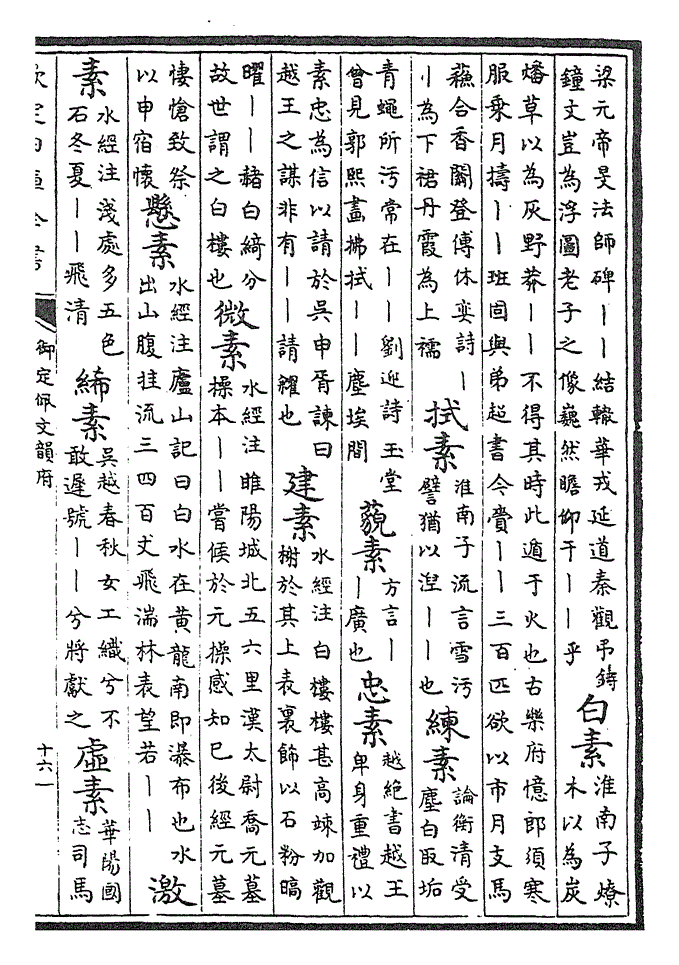 梁元帝旻法師碑丨丨結轍華戎延道秦觀弔鑄
鐘文豈為浮圖老子之像巍然瞻仰干丨丨乎
白素
淮南子燎
木以為炭
燔草以為灰野莽丨丨不得其時此遁于火也古樂府憶郎須寒
服乘月擣丨丨班固與弟超書今賚丨丨三百匹欲以市月支馬
蘇合香闕登傅休奕詩丨
丨為下裙丹霞為上襦
拭素
淮南子流言雪污
譬猶以涅丨丨也
練素
論衡清受
塵白取垢
青蠅所污常在丨丨劉迎詩玉堂
曾見郭熙畫拂拭丨丨塵埃間
藐素
方言丨
丨廣也
忠素
越絶書越王
卑身重禮以
素忠為信以請於吳申胥諫曰
越王之謀非有丨丨請糴也
建素
水經注白樓樓甚高竦加觀
榭於其上表裏飾以石粉暠
曜丨丨赭白綺分
故世謂之白樓也
微素
水經注睢陽城北五六里漢太尉喬元墓
操本丨丨嘗候於元操感知已後經元墓
悽愴致祭
以申宿懷
懸素
水經注廬山記曰白水在黃龍南即瀑布也水
出山腹挂流三四百丈飛湍林表望若丨丨
激
素
水經注淺處多五色
石冬夏丨丨飛清
絺素
吳越春秋女工織兮不
敢遲號丨丨兮將獻之
虛素
華陽國
志司馬
欽定四庫全書
御定佩文韻府
十六